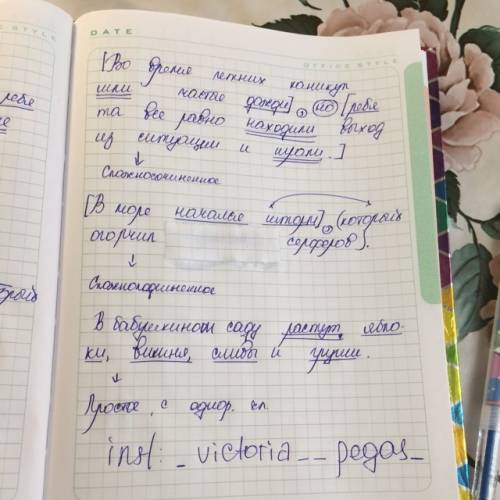 DATE
OFFICE STYLE
[Во время летних каникул
шли частые дожди], но [ребя
та все равно находили выход
из ситуации и играли.]
↓
Сложносочиненное
[В море начался шторм], (который
огорчил серферов).
↓
Сложноподчиненное
В бабушкином саду растут ябло-
ки, вишня, сливы и груши.
↓
Простое, с однор. чл.
inst: _victoria__pegas_